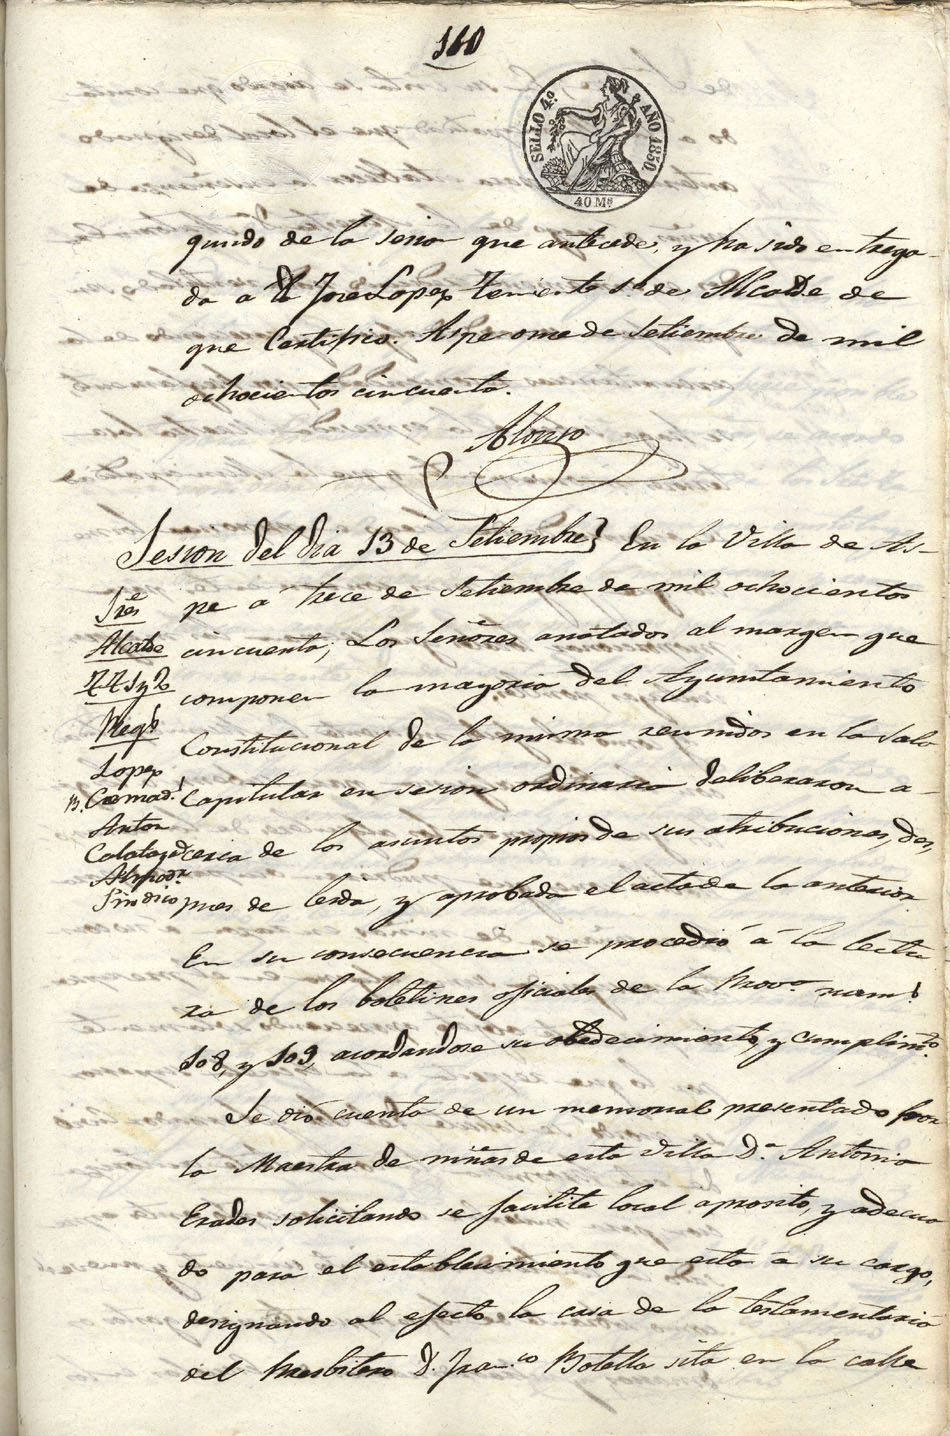 160
SELLO 4.º AÑO 1850
40 Ms
gundo de la sesion que antecede, y ha sido entrega-
da a D. Jose Lopez Teniente 1.º de Alcalde de
que Certifico. Aspe once de Setiembre de mil
ochocientos cincuenta.
Alonso
Sesion del dia 13 de Setiembre} En la Villa de As-
pe a trece de Setiembre de mil ochocientos
cincuenta; Los Señores anotados al margen que
componen la mayoria del Ayuntamiento
Constitucional de la misma reunidos en la Sala
Capitular en sesion ordinaria deliberaron a-
cerca de los asuntos propios de sus atribuciones, des,
pues de leida, y aprobada el acta de la anterior.
En su consecuencia se procedió á la lectu-
ra de los boletines oficiales de la Prov.ª num.s
108, y 109, acordandose su obedecimiento, y cumplim.to
Se dió cuenta de un memorial presentado por
la Maestra de niñas de esta Villa D.ª Antonia
Erades solicitando se facilite local aproposito, y adecua-
do para el establecimiento que esta á su cargo,
designando al efecto la casa de la testamentaria
del Presbitero D. Fran.co Botella sita en la calle
Sres
Alcalde
TT 1 y 2
Reg.s
Lopez
Cremad.s
Anton
Calatayud
Almod.r
Sindico